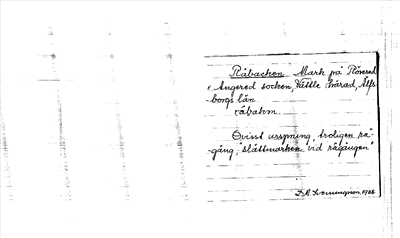 Råbacken Mark på Röserad
Angered socken, Vättle härad, Älfs-
borgs län
råbakon.
Ovisst ursprung, troligen rå-
gång, "slåttmarken vid rågången"